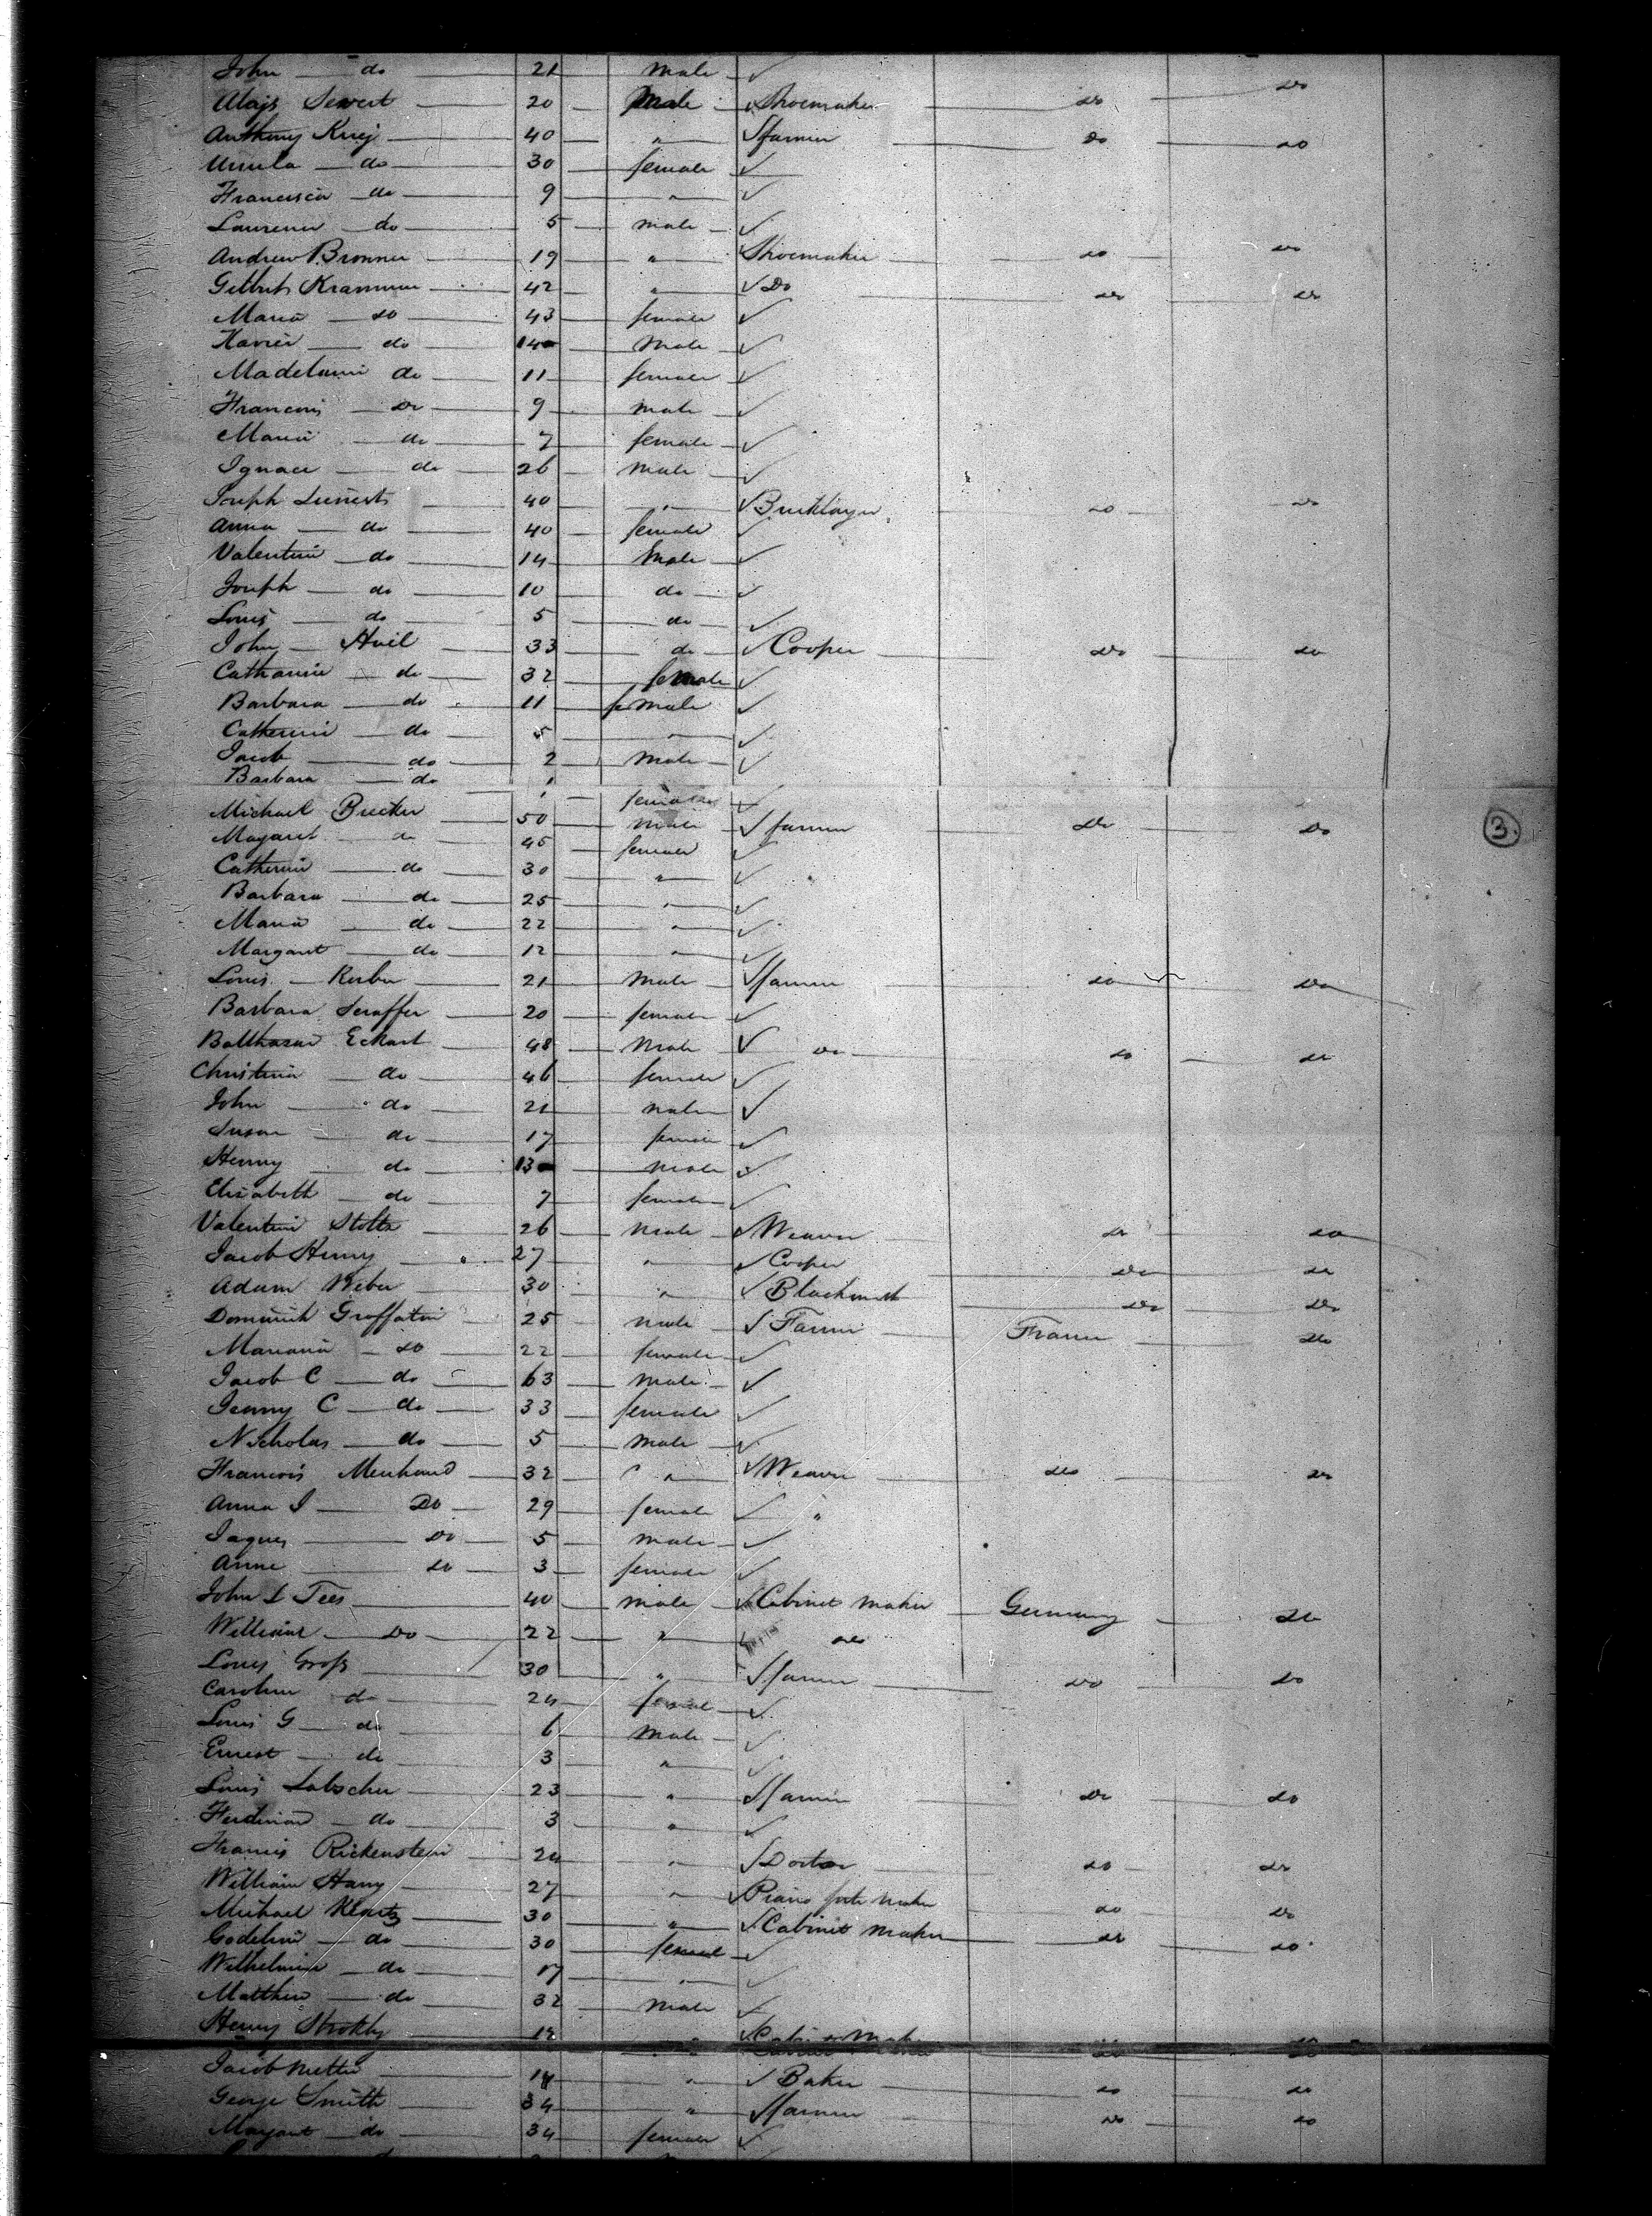 John do 21 male
Aloys Sewert 20 Male Shoemaker do do
Anthony Kriej 40 " farmer do do
Ursula do 30 female
Francisca do 9 "
Laurence do 5 male
Andrew Bronner 19 " Shoemaker do do
Gilbert Krammer 42 " Do do do
Maria do 43 female
Xavier do 14 Male
Madelaine do 11 female
Francois Do 9 male
Maria do 7 female
Ignace do 26 male
Joseph 40 " Bricklayer do do
Anna do 40 female
Valentin do 14 Male
Joseph do 10 do
Louis do 5 do
John Hoil 33 do Cooper do do
Catharine do 32 female
Barbara do 11 female
Catherine do 5 "
Jacob do 2 Male
Barbara do 1 female
Michael Becker 50 male farmer Do Do
Magaret do 45 female
Catherine do 30 "
Barbara do 25 "
Maria do 22 "
Margaret do 12 "
Louis Kerber 21 Male farmer do Do
Barbara Seraffer 20 female
Balthasar Eckart 48 Male do do do
Christina do 46 female
John do 21 male
Susan do 17 female
Henry do 13 male
Elisabeth do 7 female
Valentine Stoltz 26 male Weaver do do
Jacob Henry 27 " Cooper Do do
Adam Weber 30 " Blacksmith Do Do
Dominick Groffatin 25 male Farmer France Do
Mariana do 22 female
Jacob C do 63 Male
Jenny C do 33 female
Nicholas do 5 Male
Francois Meuhaud 32 " Weaver do do
Anna I Do 29 female "
Jaques Do 5 male
Anne do 3 female
John L Tees 40 male Cabinet maker Germany Do
William Do 22 " do
Louis Groß 30 " farmer Do Do
Caroline do 24 female
Louis G do 6 Male
Ernest do 3 "
Louis Labscher 23 " farmer Do do
Ferdinand do 3 "
Francis Rickenstein 24 " Doctor do do
William Hany 27 " Piano forte maker do Do
Michael Kentz 30 " Cabinet Maker do do
Godeline do 30 female
Wilhelmine do 17 "
Matthew do 32 male
Henry Strokly " Cabinet Maker do do
Jacob 14 " Baker do do
George Smith 34 " farmer do do
Margaret do 34 female
3.